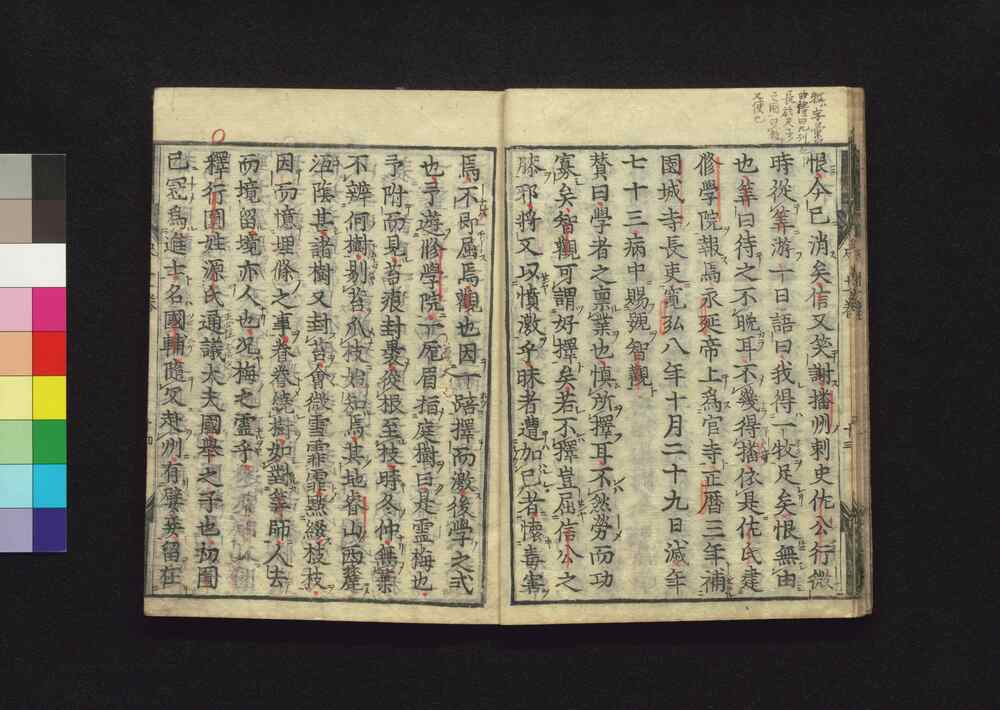 恨今已消矣信又笑謝播州刺史佐公行微
時從筭游一日語曰我得一牧足矣恨無由
也筭曰待之不晚耳不幾得播依是佐氏建
修學院報焉永延帝上爲官寺正曆三年補
園城寺長吏寬弘八年十月二十九日滅年
七十三病中賜號智觀
賛曰學者之禀業也慎所擇耳不然勞而功
寡矣智觀可謂好擇矣若不擇豈屈信公之
膝邪將又以憤激乎昧者遭加已者懷毒害
焉不即屈焉觀也因一踣擇而激後學之弍
也予遊修學院一厖眉指庭樹曰是靈梅也
予附而見苔痕封褁從根至枝時冬仲無葉
不辨何樹剔苔爪枝始知焉其地睿山西麓
洹陰甚諸樹又封苔會微雪霏霏點綴枝枝
因而憶埋條之事眷眷繞樹如對筭師人去
而境留境亦人也况梅之靈乎
釋行圓姓源氏通議大夫國舉之子也初圓
已冠爲進士名國輔隨父赴州有嬖妾留在